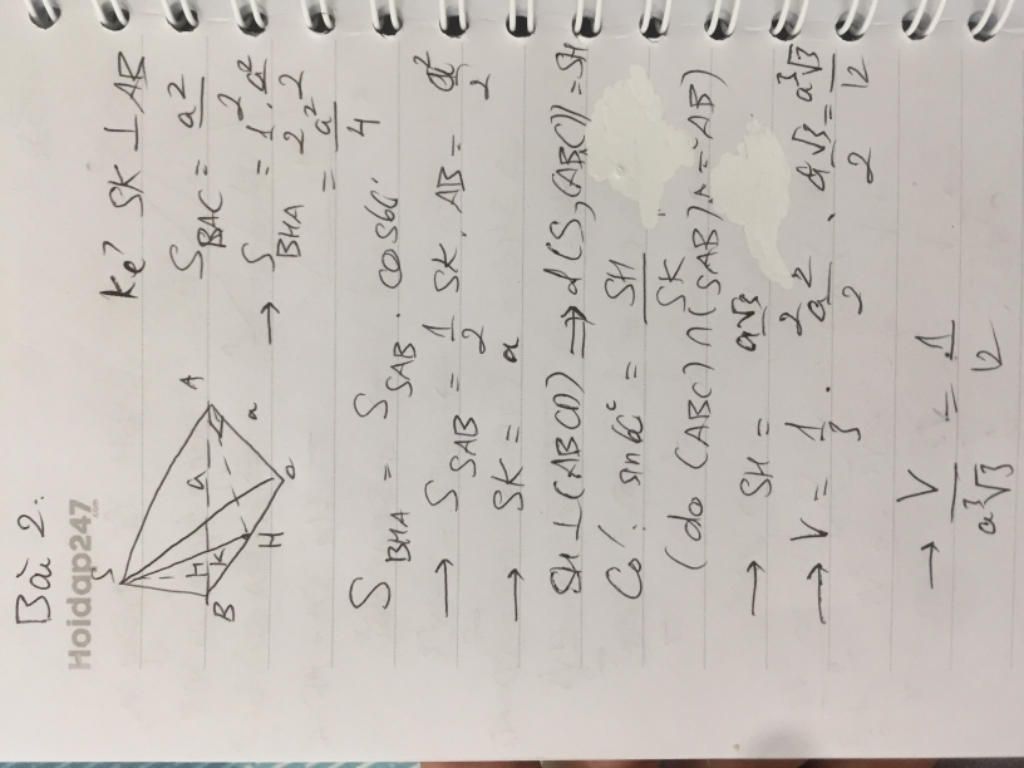 Bài 2:
Hoidap247
.com
kẻ SK ⊥ AB
S_BAC = a²/2
→ S_BHA = 1/2 . a²/2
= a²/4
S
A
a
a
K
H
B
S_BHA = S_SAB . cos60°
→ S_SAB = 1/2 SK . AB = a²/2
→ SK = a
SH ⊥ (ABCD) ⇒ d(S,(ABC)) = SH
Có: sin60° = SH/SK
(do (ABC) ∩ (SAB) = AB)
→ SH = a√3/2
→ V = 1/3 . a²/2 . a√3/2 = a³√3/12
→ V/a³√3 = 1/12